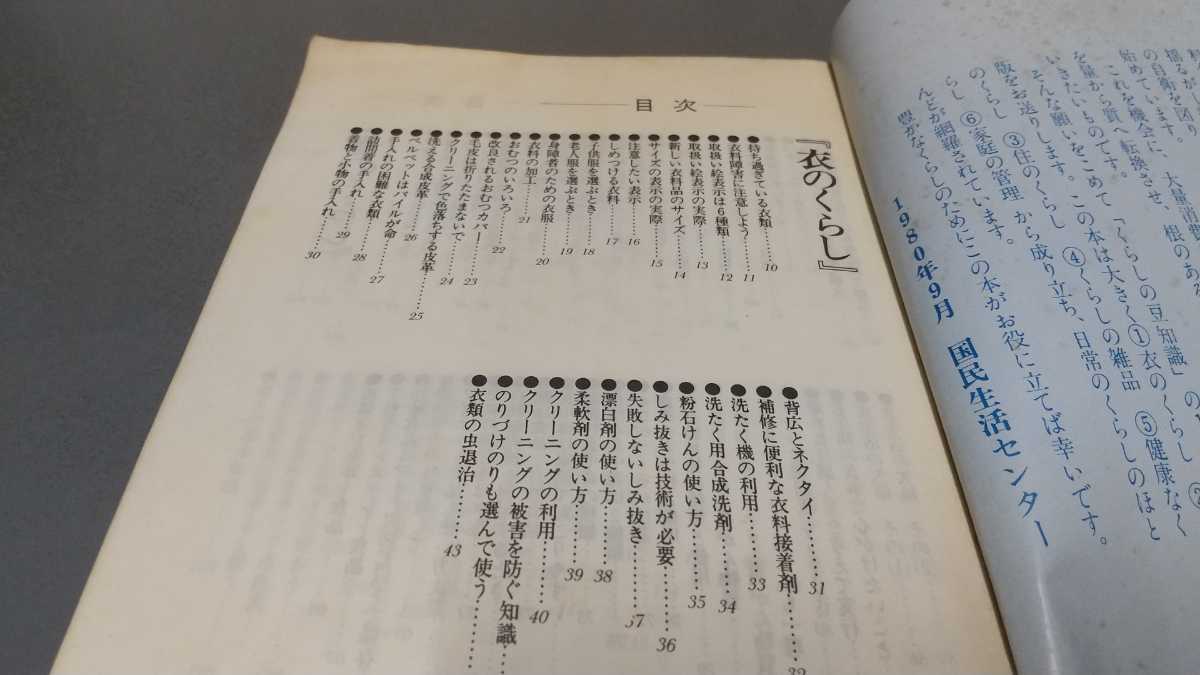 大量消費
揺るがし
の自衛を図り、根のある
始めています。
これを機会に、「くらしの豆知識」
を量から質へ転換させ、
いきたいものです。
そんな願いをこめて、この本は大きく①衣のくらし
版をお送りします。
のくらし ③住のくらし ④くらしの雑品 ⑤健康なく
らし ⑥家庭の管理 から成り立ち、日常のくらしのほと
んどが網羅されています。
豊かなくらしのためにこの本がお役に立てば幸いです。
1980年9月 国民生活センター
目次
『衣のくらし』
●持ち過ぎている衣類……10
●衣料障害に注意しよう……11
●取扱い絵表示は6種類……12
●取扱い絵表示の実際……13
●新しい衣料品のサイズ……14
●サイズの表示の実際……15
●注意したい表示……16
●しめつける衣料……17
●子供服を選ぶとき……18
●老人服を選ぶとき……19
●身障者のための衣服……20
●衣料の加工……21
●おむつのいろいろ……22
●改良されるおむつカバー……23
●毛皮は折りたたまないで……24
●クリーニングで色落ちする皮革……25
●洗える合成皮革……26
●ベルベットはパイルが命……27
●手入れの困難な衣類……28
●訪問着の手入れ……29
●着物と小物の手入れ……30
●背広とネクタイ……31
●補修に便利な衣料接着剤……32
●洗たく機の利用……33
●洗たく用合成洗剤……34
●粉石けんの使い方……35
●しみ抜きは技術が必要……36
●失敗しないしみ抜き……37
●漂白剤の使い方……38
●柔軟剤の使い方……39
●クリーニングの利用……40
●クリーニングの被害を防ぐ知識……
●のりづけのりも選んで使う……
●衣類の虫退治……43